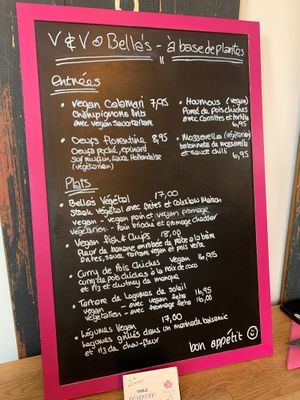 V & V @ Bella's - à base de plantes
Entrées
• Vegan Calamari 7,95
champignons frits
avec vegan sauce tartare
• Oeufs Florentine 8,95
Oeufs poché, epinard
sur muffin, sauce Hollandaise
(vegetarien)
• Houmous (vegan)
Pureé de pois chiches
avec carottes et tortilla
6,95
• Mozzarella (végétarien)
batonnets de mozzarella
et sauce chilli
6,95
Plats
• Bella's Végétal 17,00
Steak végétal avec frites et Coleslaw Maison
vegan - vegan pain et vegan fromage
végétarien - Pain brioché et fromage cheddar
• Vegan Fish & Chips 18,00
Fleur de banane enrobée de pâte à la bière
Frites, sauce tartare vegan et pois verts
• Curry de Pois Chiches Vegan 16,95
curry de pois chiches à la noix de coco
et riz et chutney de mangue
• Tartare de Legumes de soleil
vegan - avec vegan feta 14,95
Végétarien - avec fromage feta 16,00
• Légumes Vegan 17,00
Légumes grillés dans un marinade balsamic
et riz de chou-fleur
bon appétit
TABLE
réservée